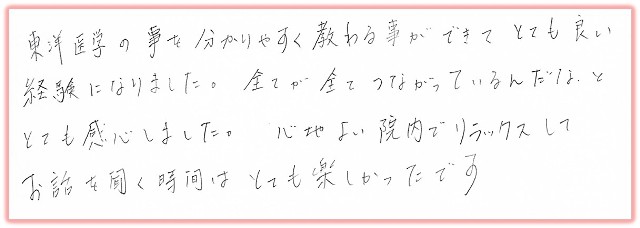 東洋医学の事を分かりやすく教わる事ができてとても良い
経験になりました。全てが全てつながっているんだな、と
とても感心しました。心地よい院内でリラックスして
お話を聞く時間はとても楽しかったです